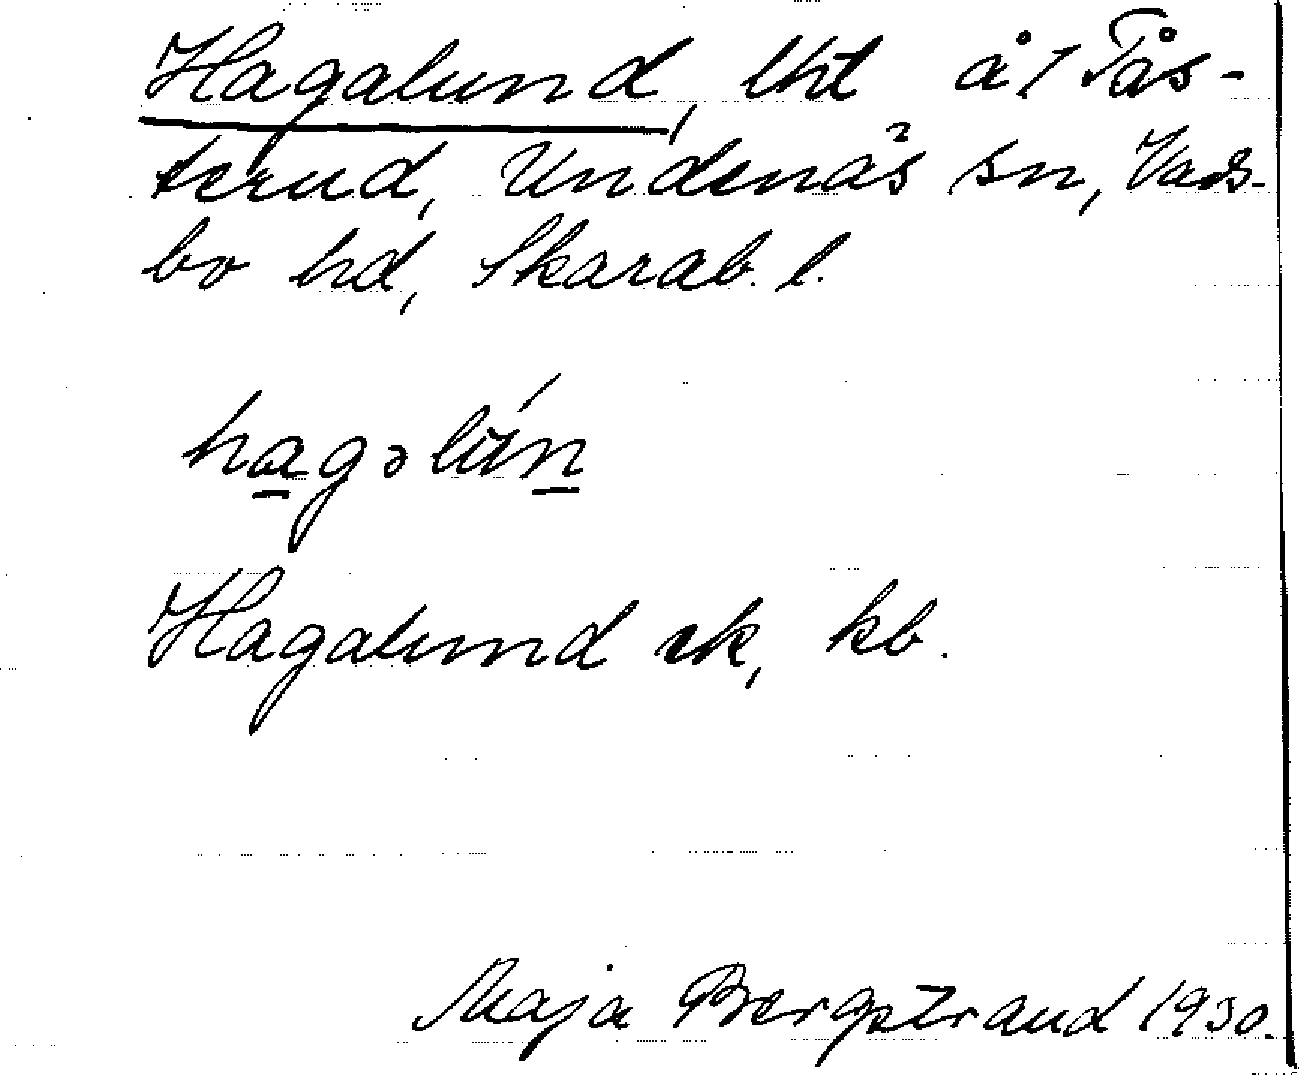 Hagalund, lht å 1 Tås-
terud, Undenäs sn, Vads-
bo hd, Skarab. l.
hagəlún
Hagalund ek, kb.
Maja Bergstrand 1930.